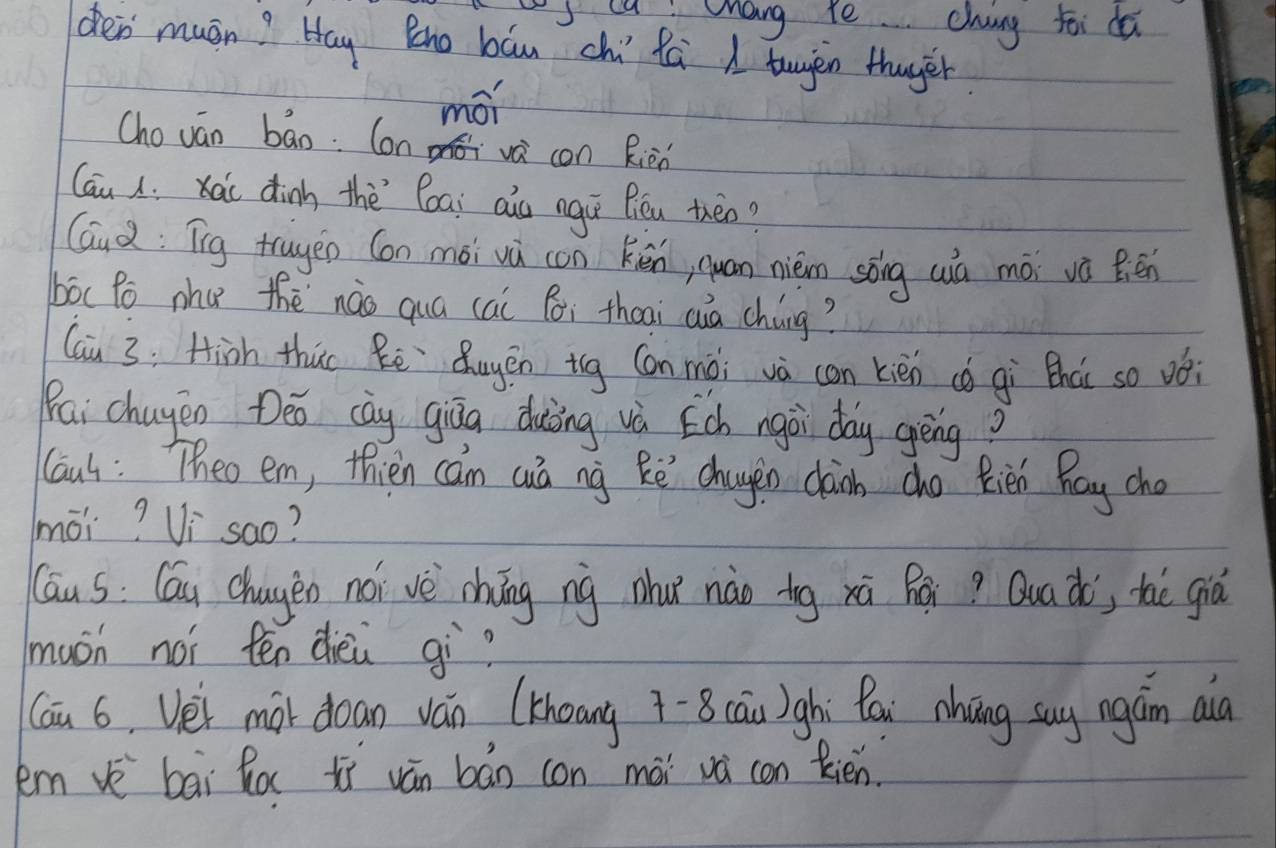 chúng tôi đã
đến muộn? Hay kho báu chỉ là 1 truyền thuyết.
mối
Cho văn bản: Con và con kiến
Câu 1: Xác định thể loại của ngữ liệu trên?
Câu 2: Trg truyện Con mối và con kiến, quan niệm sống của mối và kiến
bộc lộ như thế nào qua các lời thoại của chúng?
Câu 3: Hình thức kể chuyện trg Con mối và con kiến có gì khác so với
hai chuyện Đẽo cày giữa đường và Ếch ngồi đáy giếng?
Câu 4: Theo em, thiện cảm của ng kể chuyện dành cho kiến hay cho
mối? Vì sao?
Câu 5: Câu chuyện nói về những ng như nào trg xã hội? Qua đó, tác giả
muốn nói lên điều gì?
Câu 6. Viết một đoạn văn (khoảng 7-8 câu) ghi lại những suy ngẫm của
em về bài học từ văn bản con mối và con kiến.